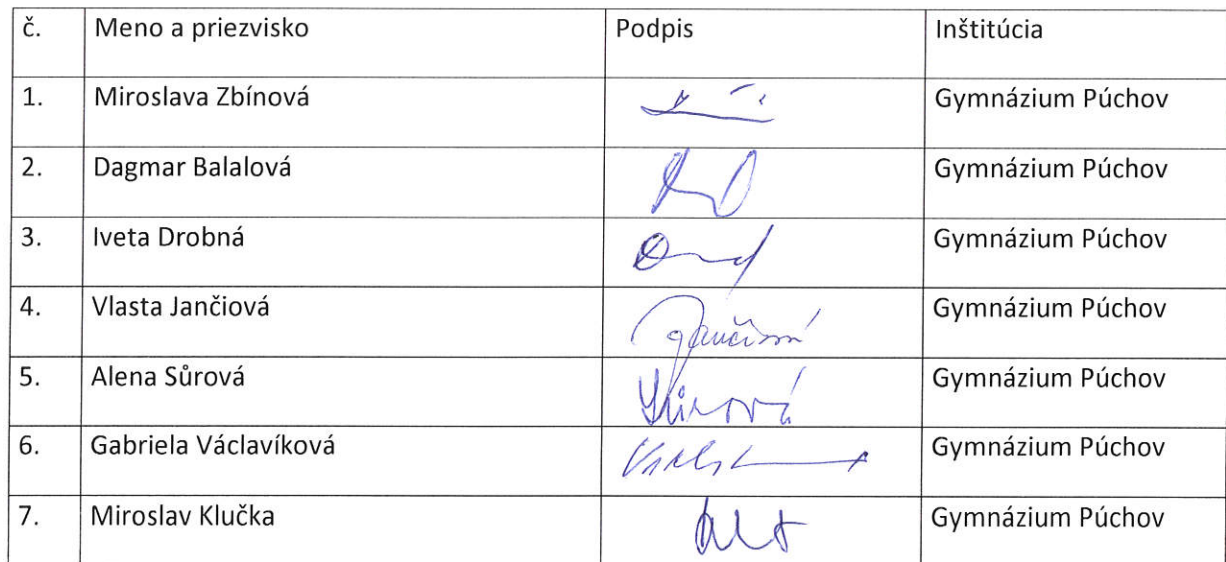 č. Meno a priezvisko Podpis Inštitúcia
1. Miroslava Zbínová Gymnázium Púchov
2. Dagmar Balalová Gymnázium Púchov
3. Iveta Drobná Gymnázium Púchov
4. Vlasta Jančiová Jančiová Gymnázium Púchov
5. Alena Sůrová Sůrová Gymnázium Púchov
6. Gabriela Václavíková Gymnázium Púchov
7. Miroslav Klučka Gymnázium Púchov